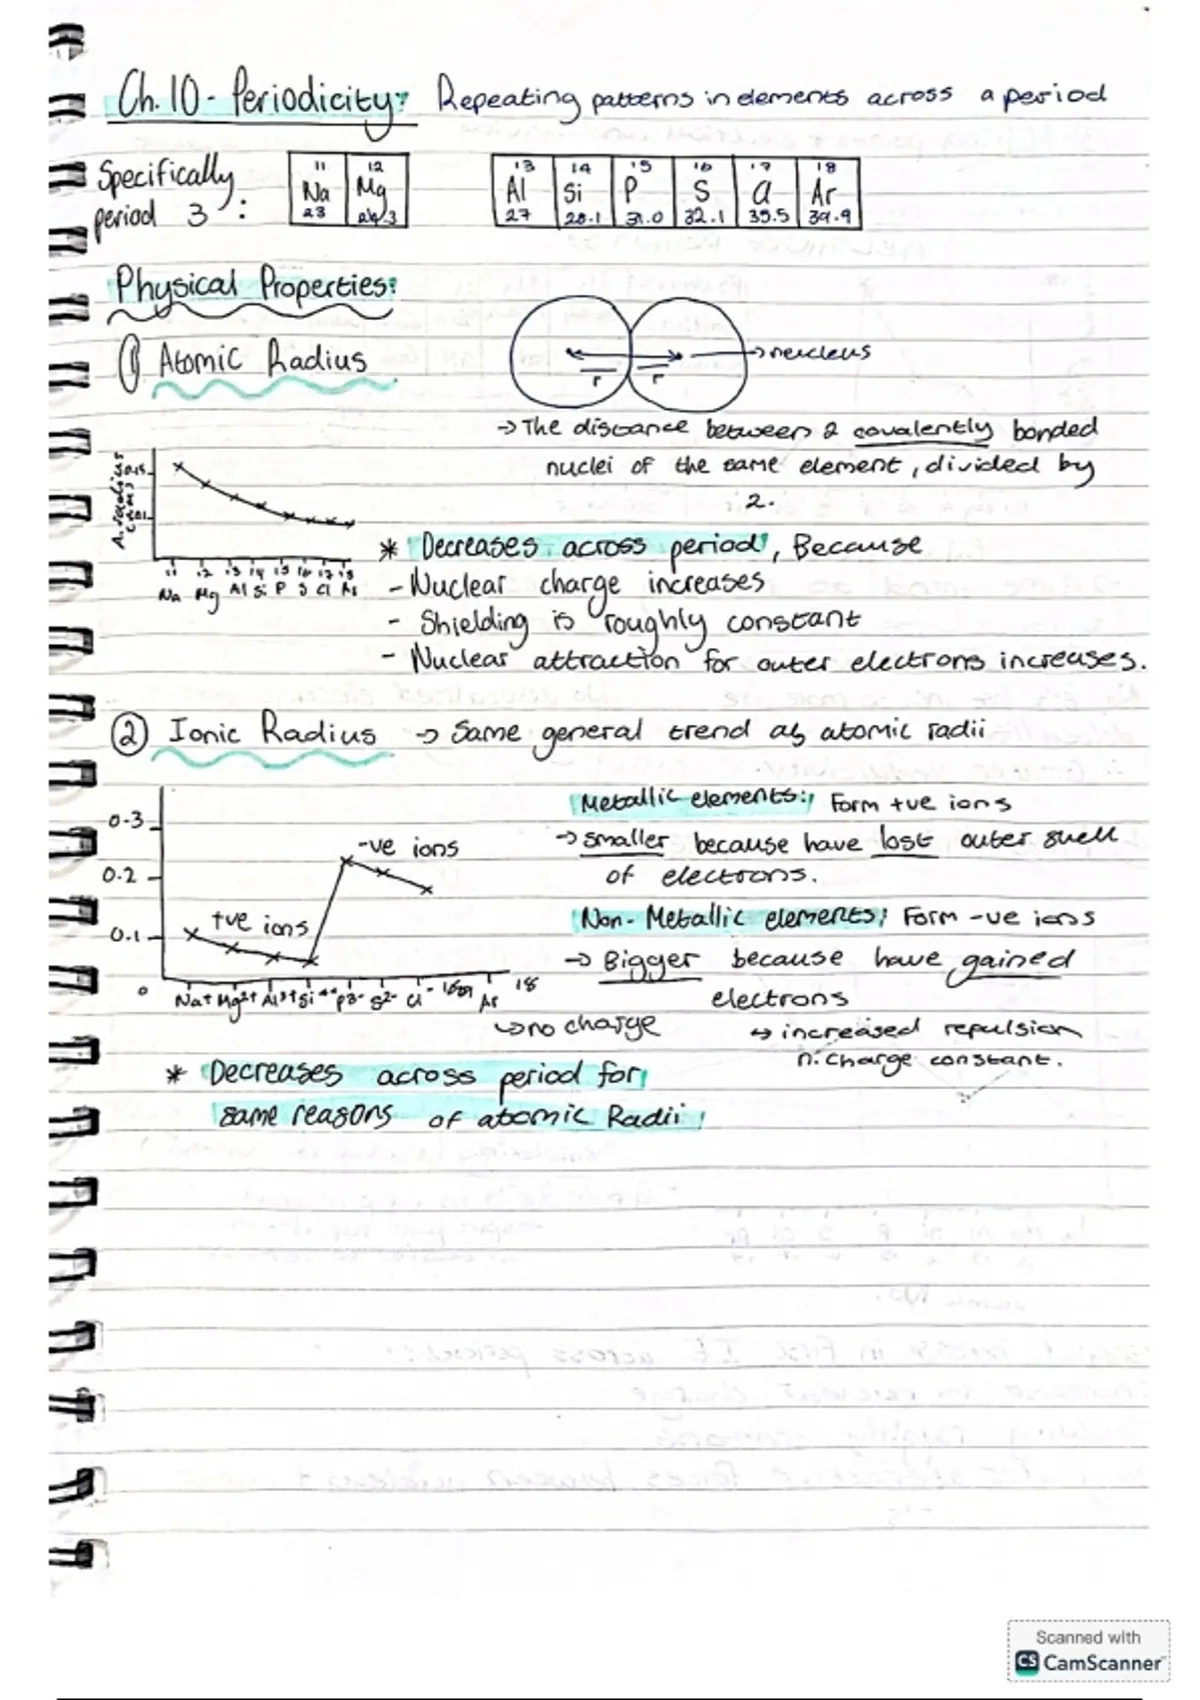 Ch.10 - Periodicity: Repeating patterns in elements across a period
Specifically period 3:
11 12 13 14 15 16 17 18
Na Mg Al Si P S Cl Ar
23 27 28.1 31.0 32.1 35.5 39.9
Physical Properties:
① Atomic Radius
→ nucleus
r r
→ The distance between 2 covalently bonded
nuclei of the same element, divided by
2.
0.15
11 12 13 14 15 16 17 18
Na Mg Al Si P S Cl Ar
* Decreases across period, Because
- Nuclear charge increases
- Shielding is roughly constant
- Nuclear attraction for outer electrons increases.
② Ionic Radius → Same general trend as atomic radii
0.3
0.2
0.1
0
-ve ions
+ve ions
Na+ Mg2+ Al3+ Si4+ P3- S2- Cl- Ar 18
↳ no charge
Metallic elements: Form +ve ions
→ smaller because have lost outer shell
of electrons.
Non-Metallic elements: Form -ve ions
→ Bigger because have gained
electrons
↳ increased repulsion
n.charge constant.
* Decreases across period for
same reasons of atomic Radii
Scanned with
CS CamScanner